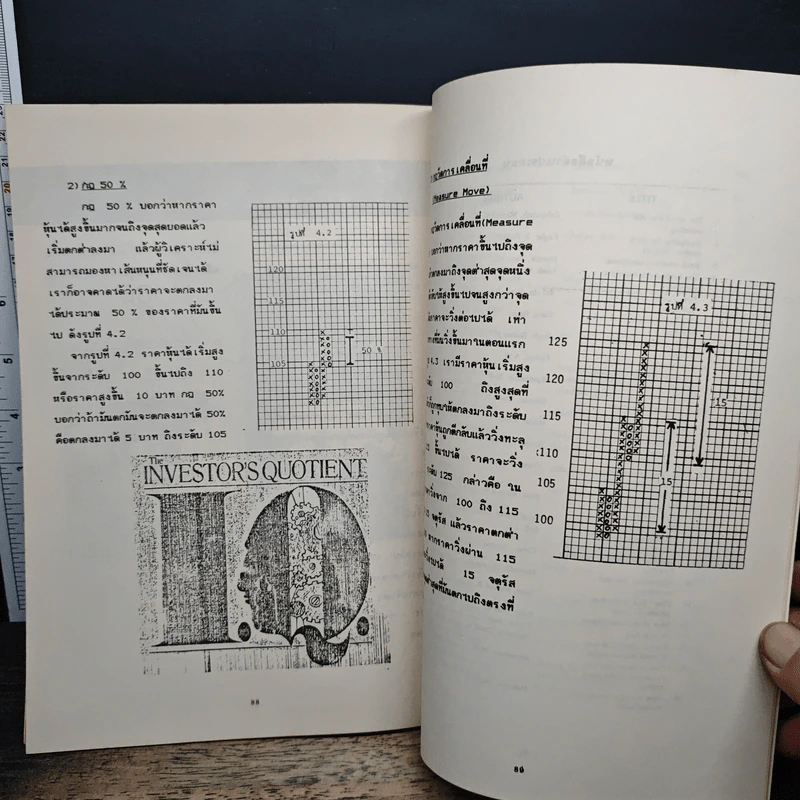 2) กฎ 50 %
กฎ 50 % บอกว่าหากราคา
หุ้นได้สูงขึ้นมากจนถึงจุดสุดยอดแล้ว
เริ่มตกต่ำลงมา แล้วผู้วิเคราะห์ไม่
สามารถมองหาเส้นหนุนที่ชัดเจนได้
เราก็อาจคาดได้ว่าราคาจะตกลงมา
ได้ประมาณ 50 % ของราคาที่มันขึ้น
ไป ดังรูปที่ 4.2
จากรูปที่ 4.2 ราคาหุ้นได้เริ่มสูง
ขึ้นจากระดับ 100 ขึ้นไปถึง 110
หรือราคาสูงขึ้น 10 บาท กฎ 50%
บอกว่าถ้ามันตกมันจะตกลงมาได้ 50%
คือตกลงมาได้ 5 บาท ถึงระดับ 105
รูปที่ 4.2
120
115
110
105
50 %
The
INVESTOR'S QUOTIENT
88
วัดการเคลื่อนที่
(Measure Move)
วัดการเคลื่อนที่(Measure
บอกว่าหากราคาขึ้นไปถึงจุด
ตกลงมาถึงจุดต่ำสุดจุหนึ่ง
ได้สูงขึ้นไปจนสูงกว่าจุด
ราคาจะวิ่งต่อไปได้ เท่า
ที่มันวิ่งขึ้นมาในตอนแรก
4.3 เรามีราคาหุ้นเริ่มสูง
100 ถึงสูงสุดที่
ตกลงมาถึงระดับ
หุ้นถูกตีกลับแล้ววิ่งทะลุ
ขึ้นไปได้ ราคาจะวิ่ง
125 กล่าวคือ ใน
วิ่งจาก 100 ถึง 115
จตุรัส แล้วราคาตกต่ำ
หากราคาวิ่งผ่าน 115
ได้ 15 จตุรัส
สุดที่มันตกไปถึงตรงที่
รูปที่ 4.3
125
120
115
110
105
100
15
15
89